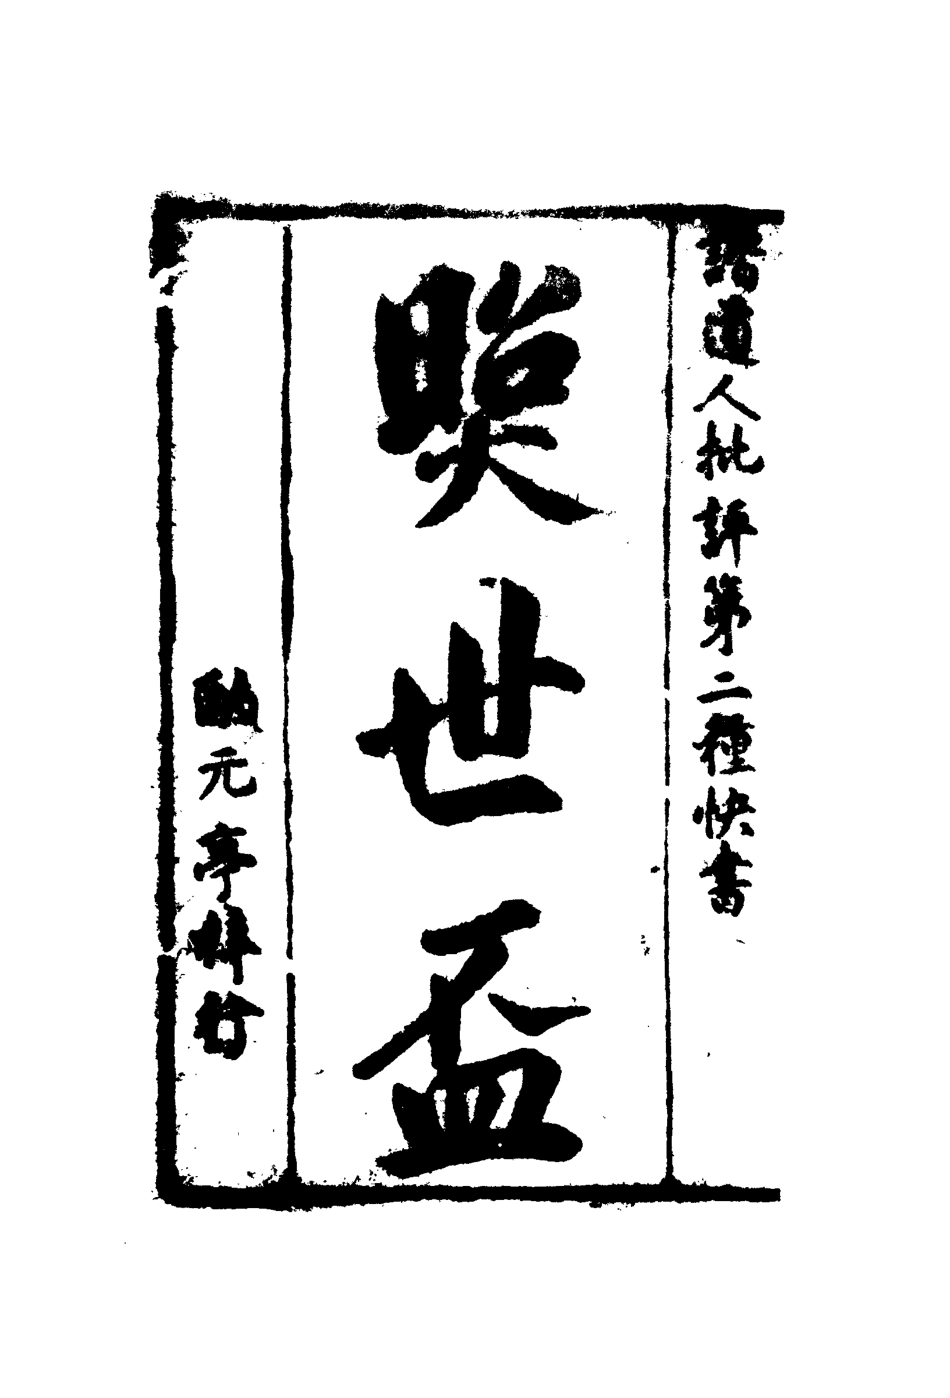 諧道人批評第二種快書
照世盃
酌元亭梓行